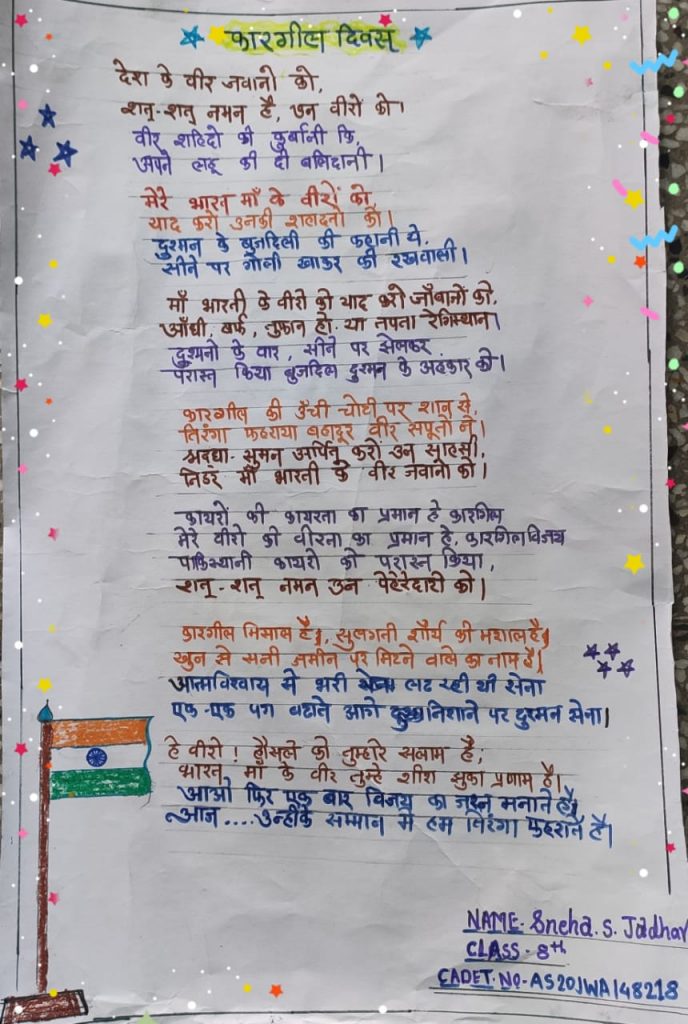 कारगील दिवस
देश के वीर जवानो को,
शत्-शत् नमन है, उन वीरो को।
वीर शहिदो की कुर्बानी कि,
अपने लहू की दी बलिदानी।
मेरे भारत माँ के वीरों को,
याद करो उनकी शहादतो को।
दुश्मन के बुजदिली की कहानी ये,
सीने पर गोली खाकर की रखवाली।
माँ भारती के वीरो को याद करो जाँबानों को,
आँधी, बर्फ, तुफान हो या तपता रेगिस्थान।
दुश्मनो के वार, सीने पर झेलकर
परास्त किया बुजदिल दुश्मन के अहंकार को।
कारगील की ऊँची चोटी पर शान से,
तिरंगा फहराया बहादूर वीर सपूतो ने।
श्रध्दा-सुमन अर्पित करो उन साहसी,
निडर माँ भारती के वीर जवानो को।
कायरों की कायरता का प्रमान है कारगिल
मेरे वीरो की वीरता का प्रमान है, कारगिल विजय
पाकिस्थानी कायरो को परास्त किया,
शत्-शत् नमन उन पेहेरेदारो को।
कारगील मिसाल है, सुलगती शौर्य की मशाल है।
खुन से सनी जमीन पर मिटने वाले का नाम है।
आत्मविश्वाय से भरी लढ रही थी सेना
एक-एक पग बढाते आगे निशाने पर दुश्मन सेना।
हे वीरो! हौसले को तुम्हारे सलाम है;
भारत माँ के वीर तुम्हे शीश झुका प्रणाम है।
आओ फिर एक बार विजय का जश्न मनाते है।
आज .... उन्हीके सम्मान मे हम तिरंगा फहराते है।
NAME- Sneha. S. Jadhav
CLASS - 8th
CADET. NO- AS20JWA148218